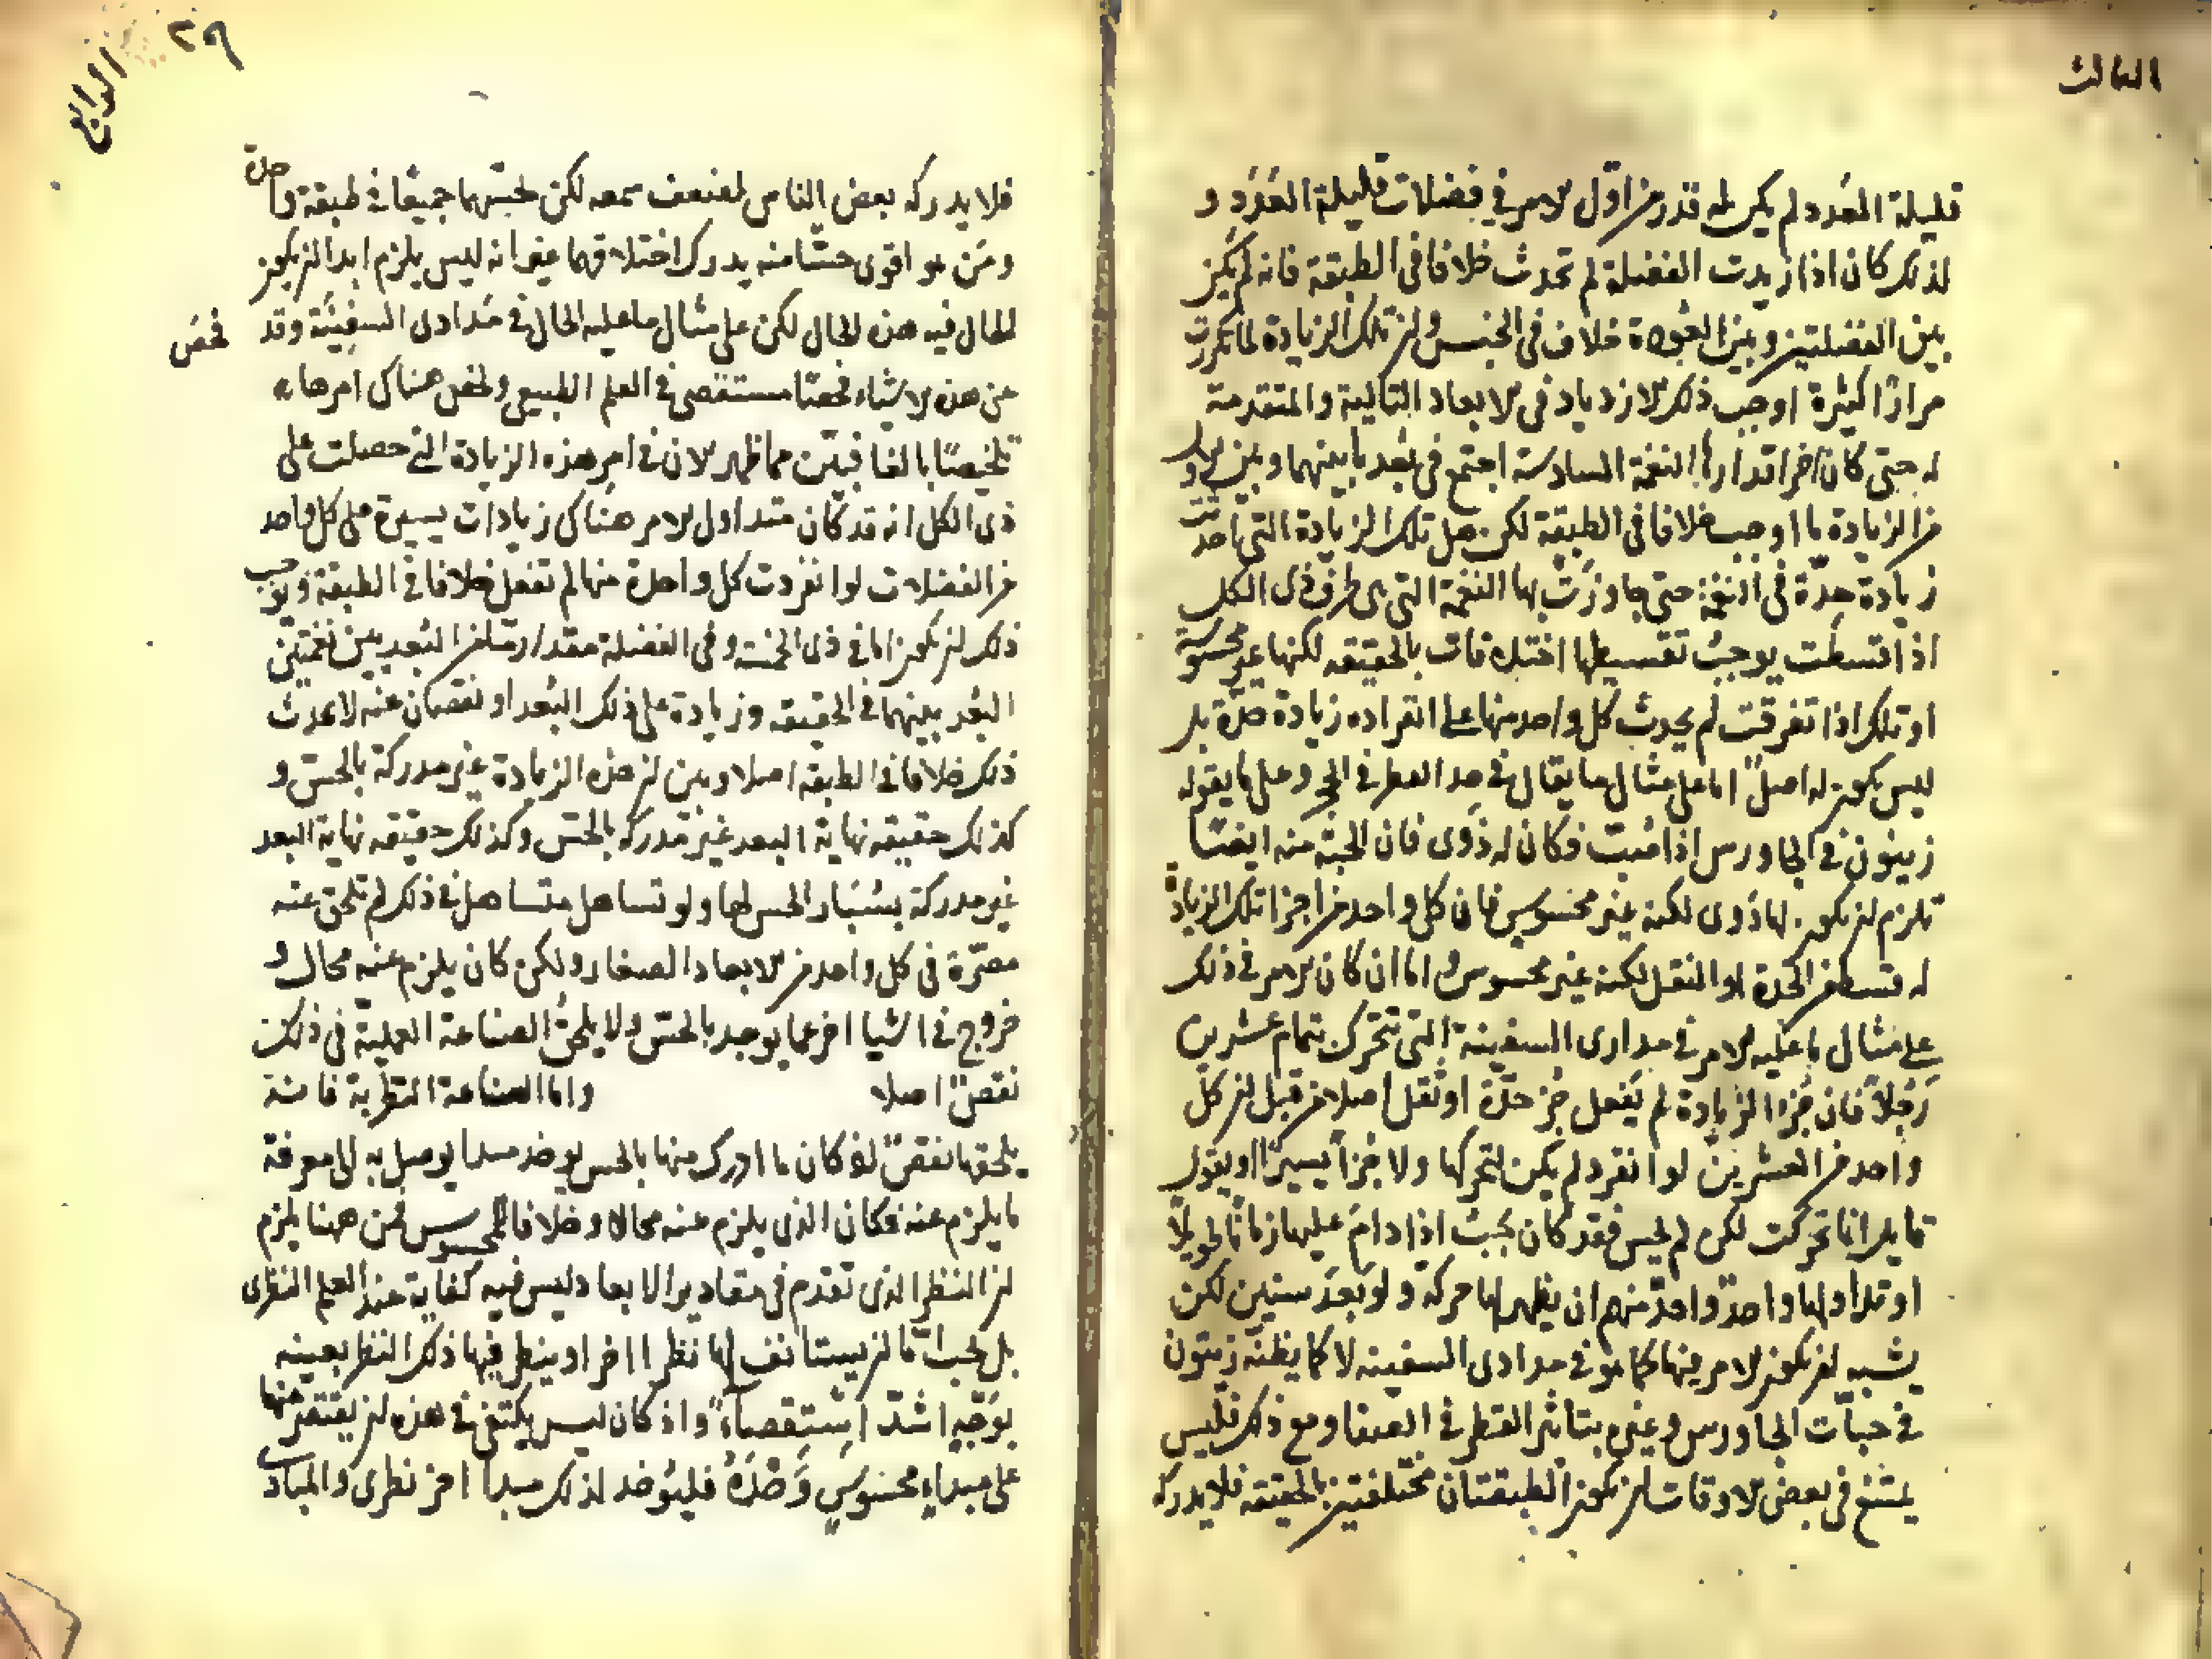 الثالث
قليلة العدد لم يكن له قدر من اول الامر في فضلات قليلة العدد و
لذلك كان اذا زيدت الفضلة لم تحدث خلافا في الطبقة فانه لم يكن
بين الفضلتين وبين العودة خلاف في الحس ولان تلك الزيادة لما تكررت
مرارا كثيرة اوجب ذلك الازدياد في الابعاد التالية والمتقدمة
له حتى كان اخر اقدارها النغمة السادسة اجتمع في بعد ما بينهما وبين
من الزيادة ما اوجب خلافا في الطبقة لكن هل تلك الزيادة التي احدثت
زيادة حدة في النغمة حتى جاوزت بها النغمة التي هي طرف ذي الكل
اذا قسطت يوجب تقسيطها اختلافات بالحقيقه لكنها غير محسوسة
او تلك اذا تفرقت لم يحدث كل واحد منها على انفراده زيادة حدة بل
ليس يكون له اصلا اما على مثال ما يقال في حد القطر في الحجر وعلى ما يقوله
زينون في الجاورس اذا صبت فكان له دوى فان الحبة منه ايضا
تلزم ان يكون لها دوى لكنه غير محسوس فان كل واحد من اجزا تلك الزيادة
له قسط من الحدة او الثقل لكنه غير محسوس واما ان كان الامر في ذلك
على مثال ما عليه الامر في مدادى السفينة التي تتحرك بتمام عشرين
رجلا فان جزا الزيادة لم يفعل جز حدة او ثقل اصلا من قبل ان كل
واحد من العشرين لو انفرد لم يكن لتحركها ولا جزأ يسيرا او يقول
قايل انما تحركت لكن لم يحس فقد كان يجب اذا دام عليها زمانا طويلا
او تداولها واحد واحد منهم ان يظهر لها حركة ولو بعد سنين لكن
يشبه ان يكون الامر فيها كما هو في مدادى السفينه لا كما يظنه زينون
في حبات الجاورس وغيره بتاثير القطر في الصفا ومع ذلك فليس
يمتنع في بعض الاوقات ان يكون الطبقتان مختلفتين بالحقيقه فلا يدركه
٢٩
الرابع
فلا يدركه بعض الناس لضعف سمعه لكن يحسهما جميعا في طبقة واحدة
ومن هو اقوى حسا منه يدرك اختلافهما غير انه ليس يلزم ابدا ان يكون
الحال فيه هذه الحال لكن على مثال ما عليه الحال في مدادى السفينة وقد فحص
عن هذه الاشياء فحصا مستقصى في العلم الطبيعي ولخص هناك امرها
تلخيصا بالغا فبين مما ظهر الان في امر هذه الزيادة التي حصلت على
ذى الكل انه قد كان منذ اول الامر هناك زيادات يسيرة على كل واحد
من الفضلات لو انفردت كل واحدة منها لم تفعل خلافا في الطبقة ويوجب
ذلك ان يكون اما في ذى الخمسة وفي الفضلة مقدار ما من البعد بين نغمتين
البعد بينهما في الحقيقه وزيادة على ذلك البعد او نقصان عنه لا يحدث
ذلك خلافا في الطبقة اصلا وبين ان هذه الزيادة غير مدركة بالحس و
كذلك حقيقه نهاية البعد غير مدركه بالحس وكذلك حقيقه نهاية البعد
غير مدركة بسبار الحس لها ولو تساهل متساهل في ذلك لم تلحق عنه
مضرة في كل واحد من الابعاد الصغار ولكن كان يلزم عنه محال و
خروج في اشيا اخر عما يوجد بالحس ولا يلحق الصناعة العملية في ذلك
نقص اصلا واما الصناعة النظرية فانه
يلحقها نقص لو كان ما ادرك منها بالحس يوخذ مبدا يوصل به الى معرفة
ما يلزم عنه فكان الذي يلزم عنه محالا وخلافا للمحسوس فمن هنا يلزم
ان النظر الذي تقدم في مقادير الابعاد ليس فيه كفاية عند العلم النظرى
بل يجب اما ان يستانف لها نظرا اخر او ينظر فيها ذلك النظر بعينه
بوجه اشد استقصاء واذ كان ليس يكتفى في هذه ان يقتصر منها
على مبداء محسوس وحده فليوخذ لذلك مبدا اخر نظرى والمبادى